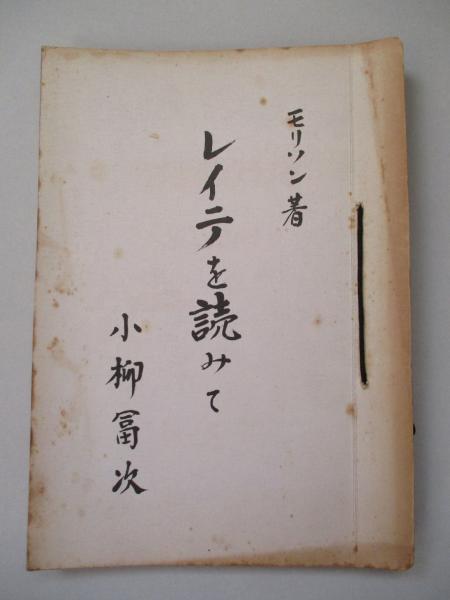 モリソン著
レイテを読みて
小柳冨次